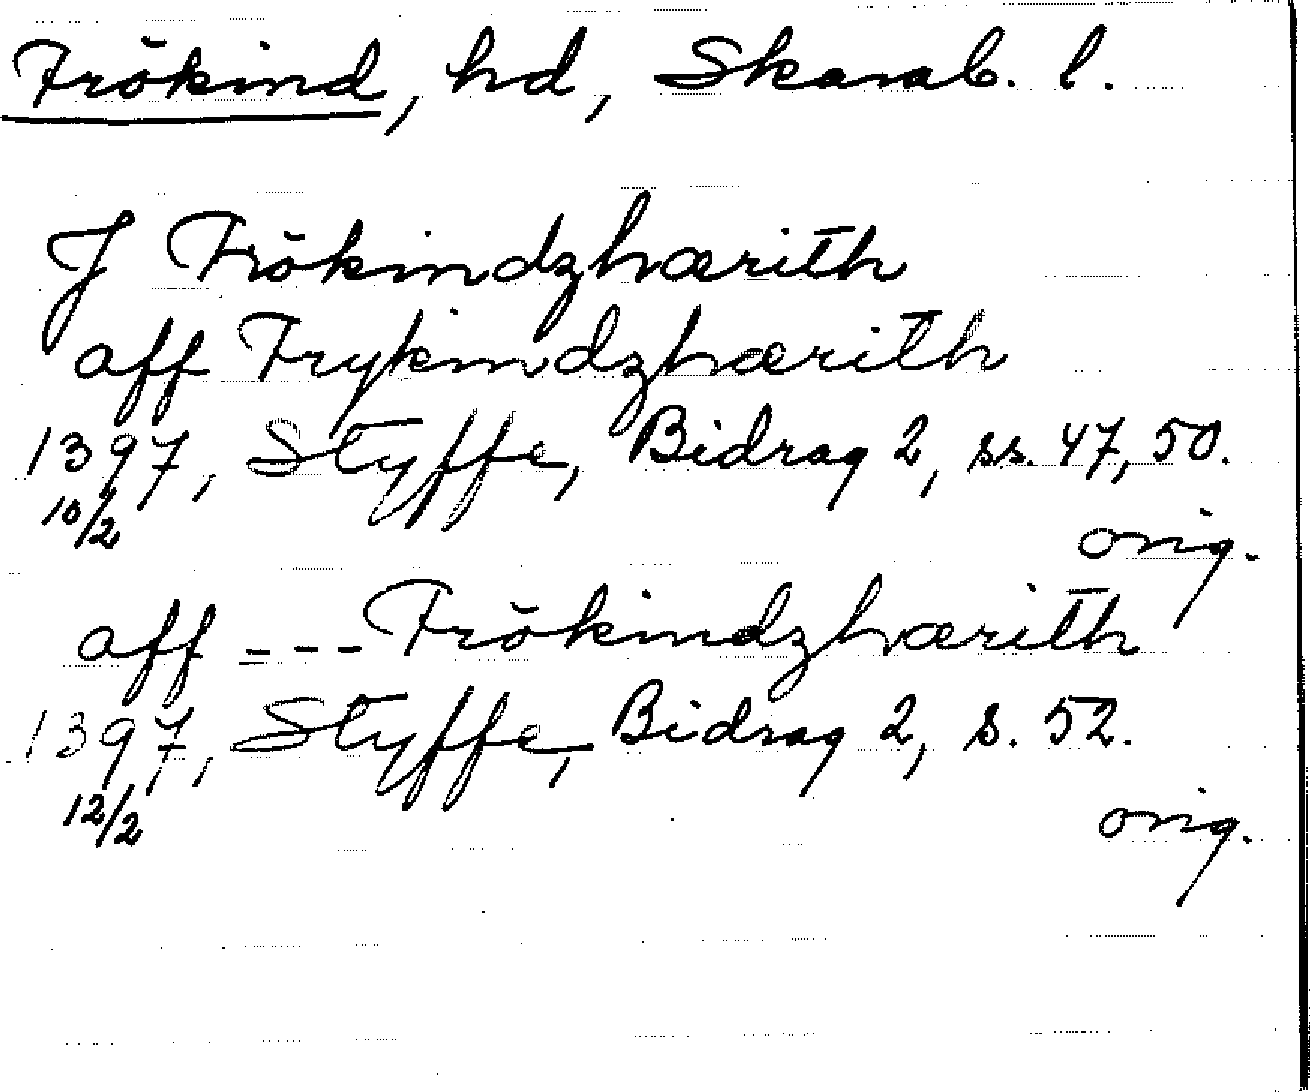 Frökind, hd, Skarab. l.
J Frökindzhærith
aff Frykindzhærith
1397, Styffe, Bidrag 2, ss. 47, 50.
10/2
orig.
aff --- Frökindzhærith
1397, Styffe, Bidrag 2, s. 52.
12/2
orig.